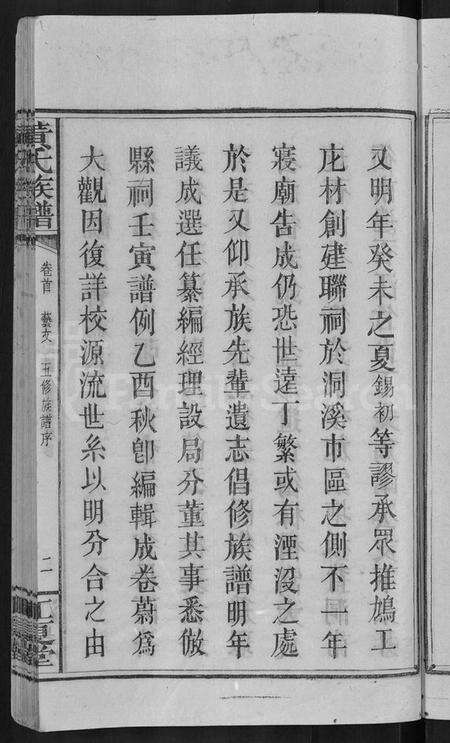 又明年癸未之夏錫初等謬承眾推鳩工
庀材創建聯祠於洞溪市區之側不一年
寢廟告成仍恐世遠丁繁或有湮沒之處
於是又仰承族先輩遺志倡修族譜明年
議成選任纂編經理設局分董其事悉倣
縣祠壬寅譜例乙酉秋卽編輯成卷蔚爲
大觀因復詳校源流世系以明分合之由
黃氏族譜
卷首 藝文 五修族譜序
二
江夏堂